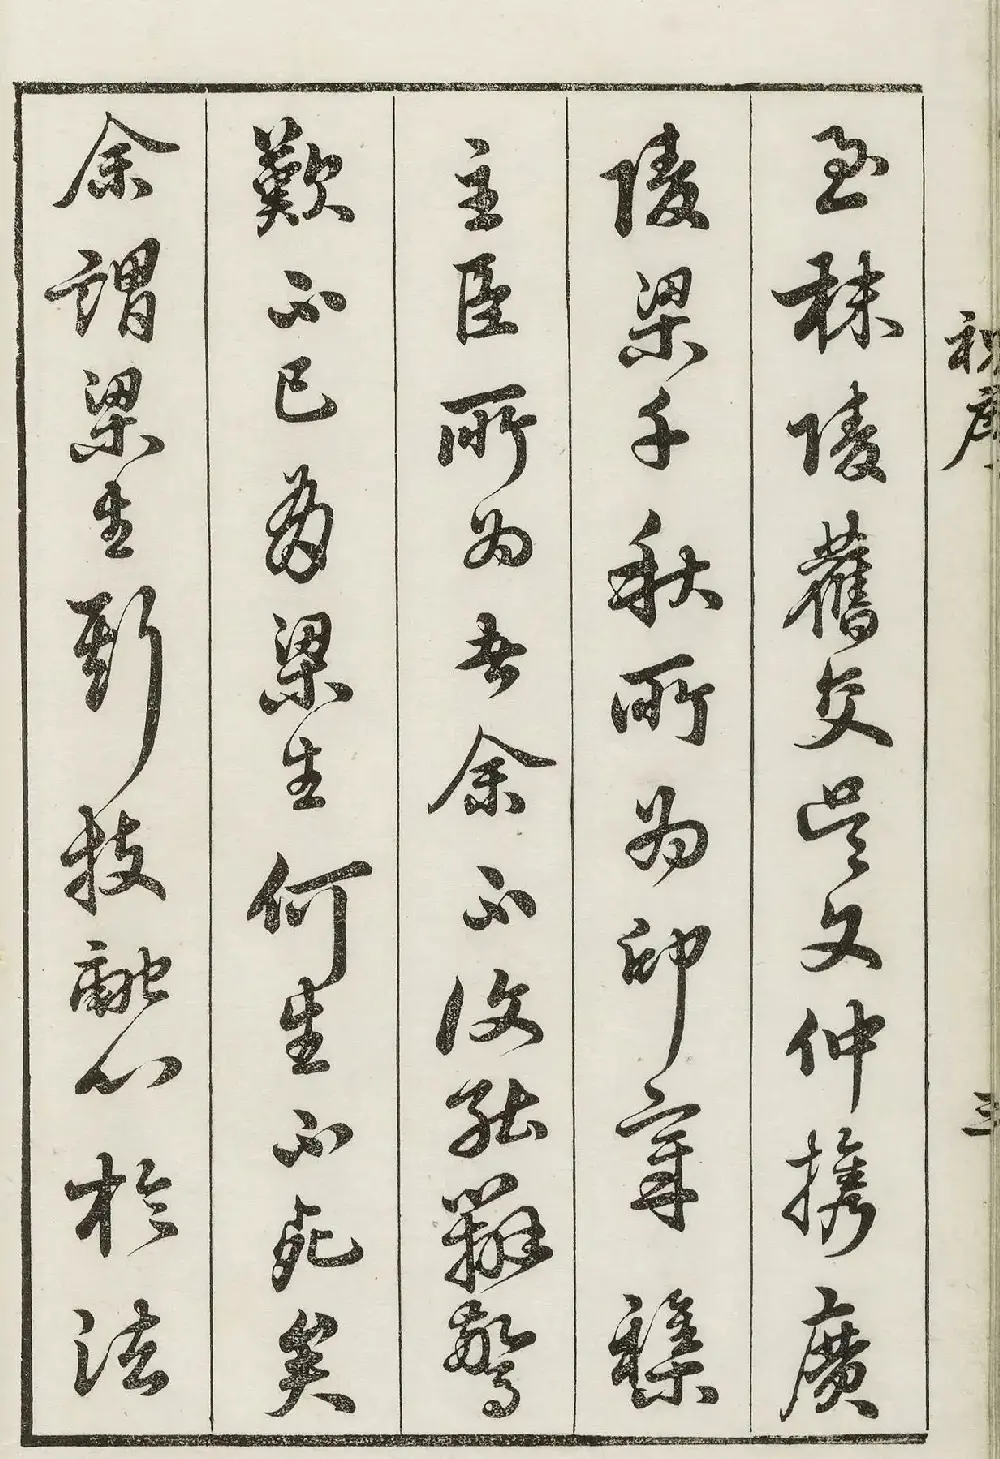 至秣陵舊交吳文仲携廣
陵梁千秋所為印章襍
主臣所為者余不復能辨驚
歎不已為梁生何生不死矣
余謂梁生技融心於法
祝序
三